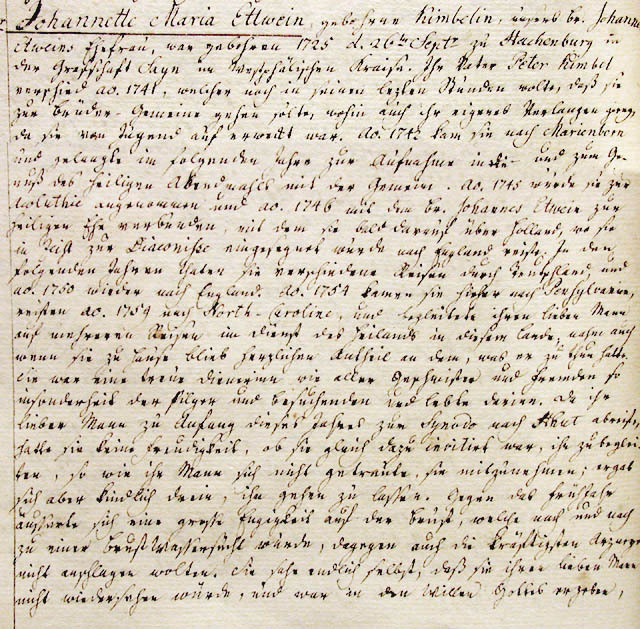 Johannette Maria Ettwein, gebohrne Kimbelin, unsers br. Johannes
Etweins Ehefrau, war gebohren 1725 d. 26ten Septr zu Hachenburg in
der Grafschaft Sayn im Westphälischen Kraise. Ihr Vater Peter Kimbel
verschied ao. 1741, welcher noch in seinen lezten Stunden wolte, daß sie
zur Brüder-Gemeine gehen solte, wohin auch ihr eigenes Verlangen ging,
da sie von Jugend auf erwekt war. Ao. 1743 kam sie nach Marienborn
und gelangte im folgenden Jahre zur Aufnahme in die- und zum Ge-
nuß des heiligen Abendmahls mit der Gemeine. Ao. 1745 wurde sie zur
Acoluthie angenommen und ao. 1746 mit dem br. Johannes Etwein zur
heiligen Ehe verbunden, mit dem sie bald darauf über Holland, wo sie
in Zeist zur Diaconisse eingesegnet wurde nach England reiste. In den
folgenden Jahren thaten sie verschiedene Reisen durch Teutschland und
ao. 1750 wieder nach England. Ao. 1754 kamen sie hieher nach Pensylvanien,
reisten ao. 1759 nach North-Caroline, und begleitete ihren lieben Mann
auf mehreren Reisen im dienst des Heilands in diesem Lande; nahm auch
wenn sie zu Hause blieb herzlichen Antheil an dem, was er zu thun hatte.
Sie war eine treue dienerinn wie aller Geschwister und fremden so
insonderheit der Pilger und besuchenden und lebte darinn. Da ihr
lieber Mann zu Anfang dieses Jahres zur Synodo nach Hhut abreiste,
hatte sie keine freudigkeit, ob sie gleich dazu invitirt war, ihn zu beglei-
ten, so wie ihr Mann sich nicht getraute, sie mitzunehmen; ergab
sich aber kindlich drein, ihn gehen zu lassen. Gegen das frühjahr
äusserte sich eine grosse Engigkeit auf der brust, welche nach und nach
zu einer brust Wassersucht wurde, dagegen auch die kräftigsten Arzneyen
nicht anschlagen wolten. Sie sahe endlich selbst, daß sie ihren lieben Mann
nicht wiedersehen würde, und war in den Willen Gottes ergeben,